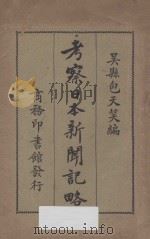 吴縣包天笑編
考察日本新聞記略
商務印書館發行